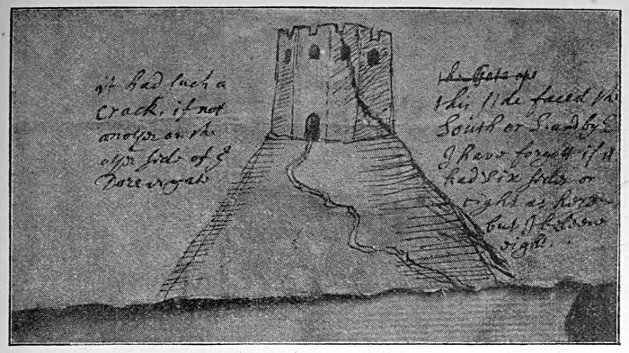 it had such a
crack, if not
another on the
other side of ye
Dore or gate
the Gate op
this side faced the
South or S and by E
I have forgott if it
had six sides or
eight as here
but I beleeve
eight.